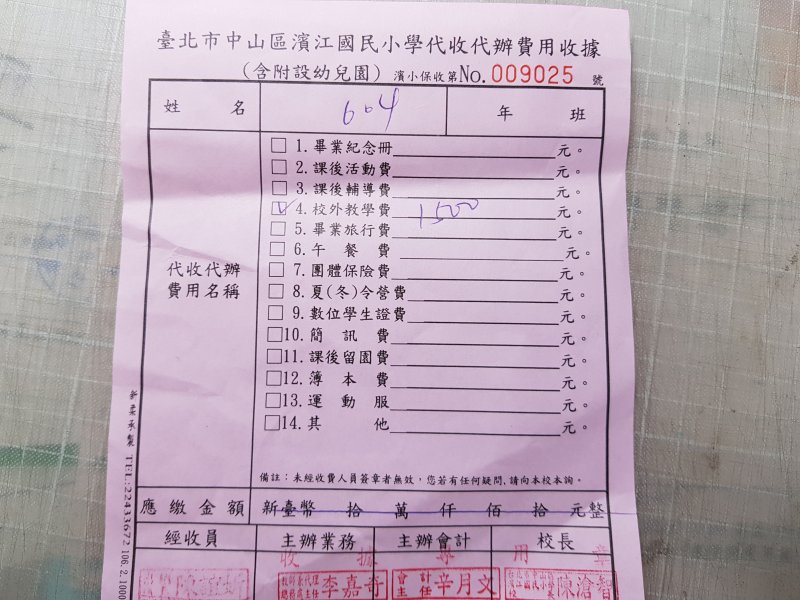 臺北市中山區濱江國民小學代收代辦費用收據
(含附設幼兒園) 濱小保收第No. 009025 號
姓 名 604 年 班
代收代辦
費用名稱
□ 1. 畢業紀念冊 元。
□ 2. 課後活動費 元。
□ 3. 課後輔導費 元。
☑ 4. 校外教學費 1500 元。
□ 5. 畢業旅行費 元。
□ 6. 午 餐 費 元。
□ 7. 團體保險費 元。
□ 8. 夏(冬)令營費 元。
□ 9. 數位學生證費 元。
□10. 簡 訊 費 元。
□11. 課後留園費 元。
□12. 簿 本 費 元。
□13. 運 動 服 元。
□14. 其 他 元。
備註:未經收費人員簽章者無效,您若有任何疑問、請向本校本詢。
應繳金額 新臺幣 拾 萬 仟 佰 拾 元整
經收員 主辦業務 主辦會計 校長
收據專用章
李嘉奇
會計主任 辛月文
陳滄智
新柔承製 TEL:22433672 106.2.1000